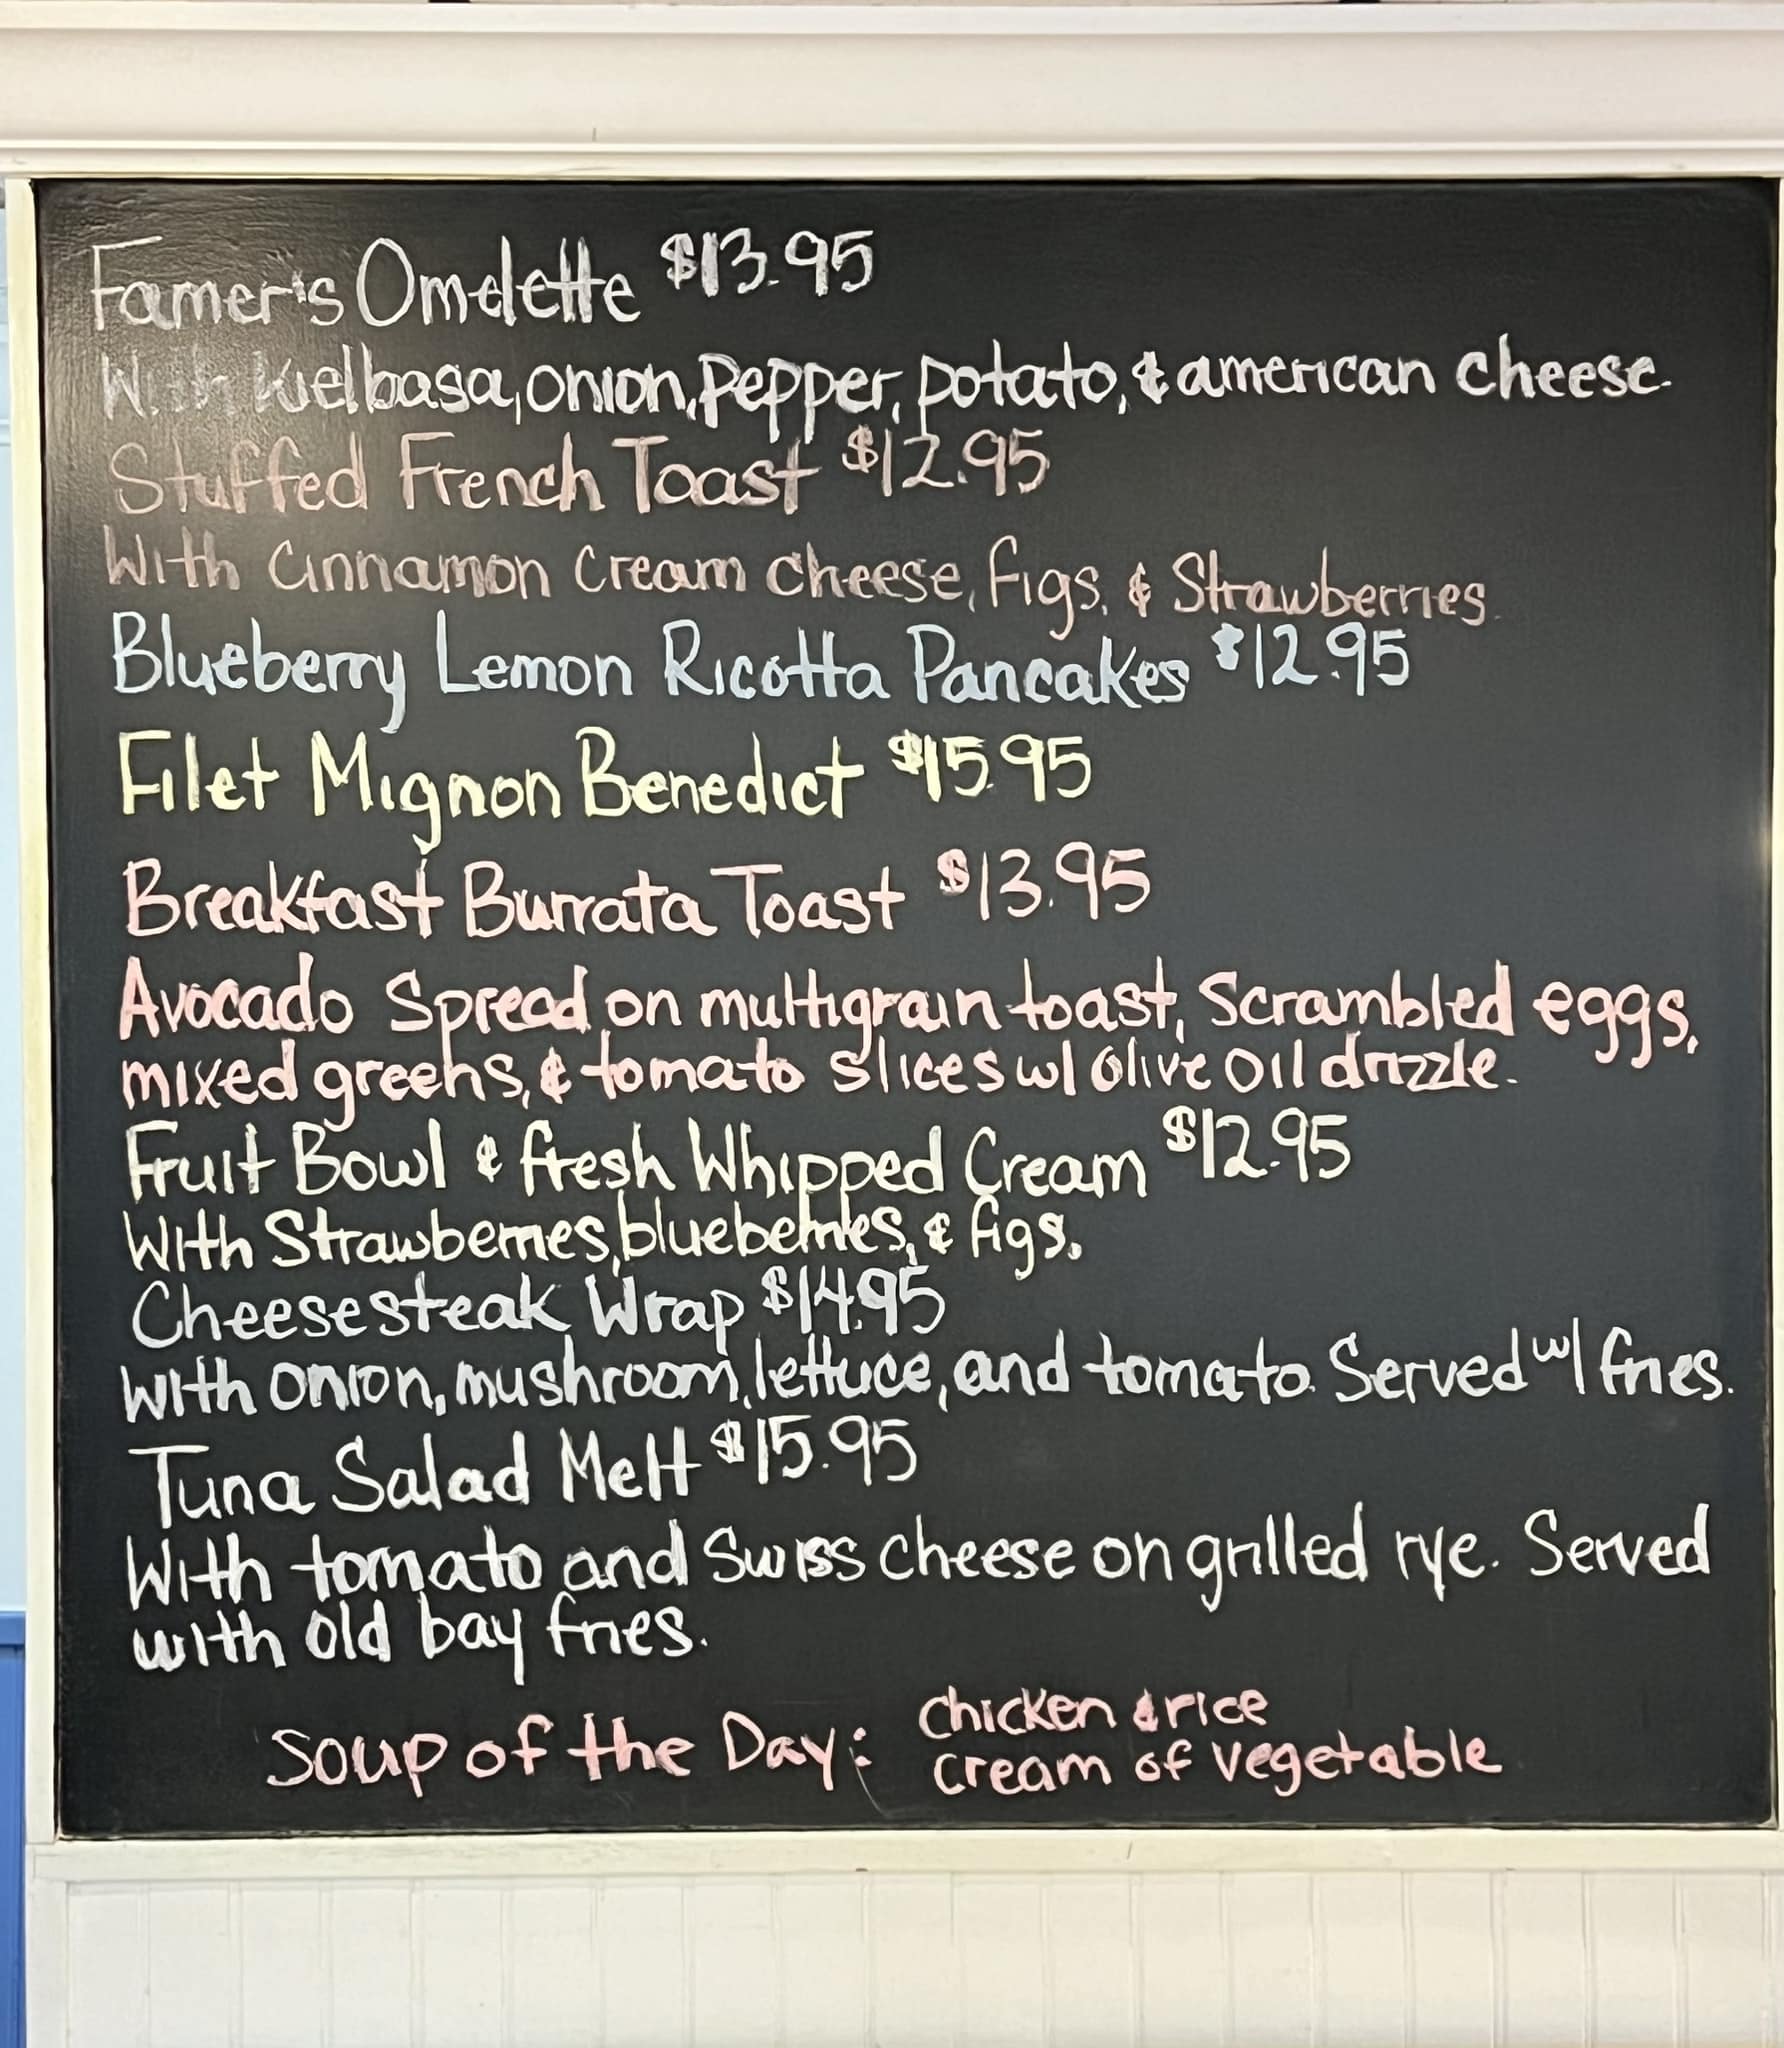 Famer's Omelette $13.95
With kielbasa, onion, pepper, potato, & american cheese.
Stuffed French Toast $12.95
With Cinnamon Cream cheese, figs, & Strawberries.
Blueberry Lemon Ricotta Pancakes $12.95
Filet Mignon Benedict $15.95
Breakfast Burrata Toast $13.95
Avocado Spread on multigrain toast, Scrambled eggs,
mixed greens, & tomato slices w/ olive oil drizzle.
Fruit Bowl & fresh Whipped Cream $12.95
With Strawberries, blueberries, & figs.
Cheesesteak Wrap $14.95
With onion, mushroom, lettuce, and tomato. Served w/ fries.
Tuna Salad Melt $15.95
With tomato and Swiss cheese on grilled rye. Served
with old bay fries.
Soup of the Day: Chicken & rice
Cream of vegetable